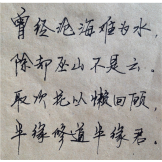 曾经沧海难为水，
除却巫山不是云。
取次花丛懒回顾
半缘修道半缘君。